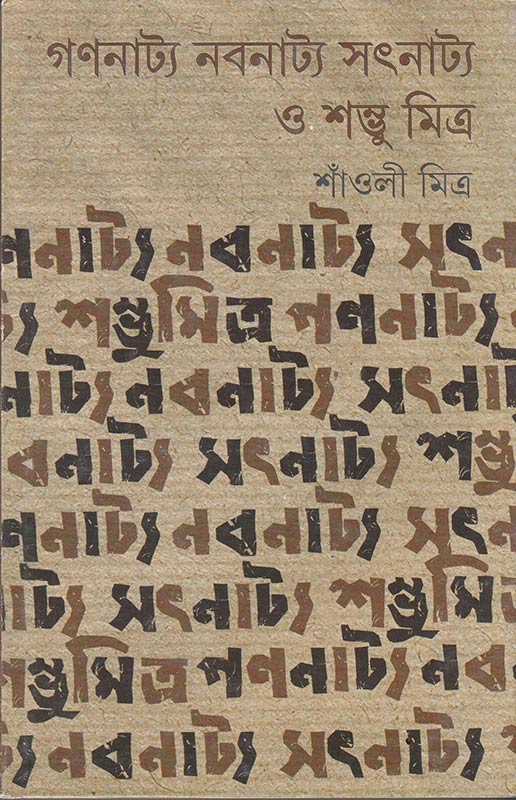 গণনাট্য নবনাট্য সৎনাট্য
ও শম্ভু মিত্র
শাঁওলী মিত্র
ণনাট্য নবনাট্য সৎন
ট্য শম্ভুমিত্র গণনাট্য
নাট্য নবনাট্য সৎনাট
বনাট্য সৎনাট্য শম্ভু
ণনাট্য নবনাট্য সৎন
াট্য সৎনাট্য শম্ভুমিত্র
শম্ভুমিত্র গণনাট্য নবন
ট্য নবনাট্য সৎনাট্য শ